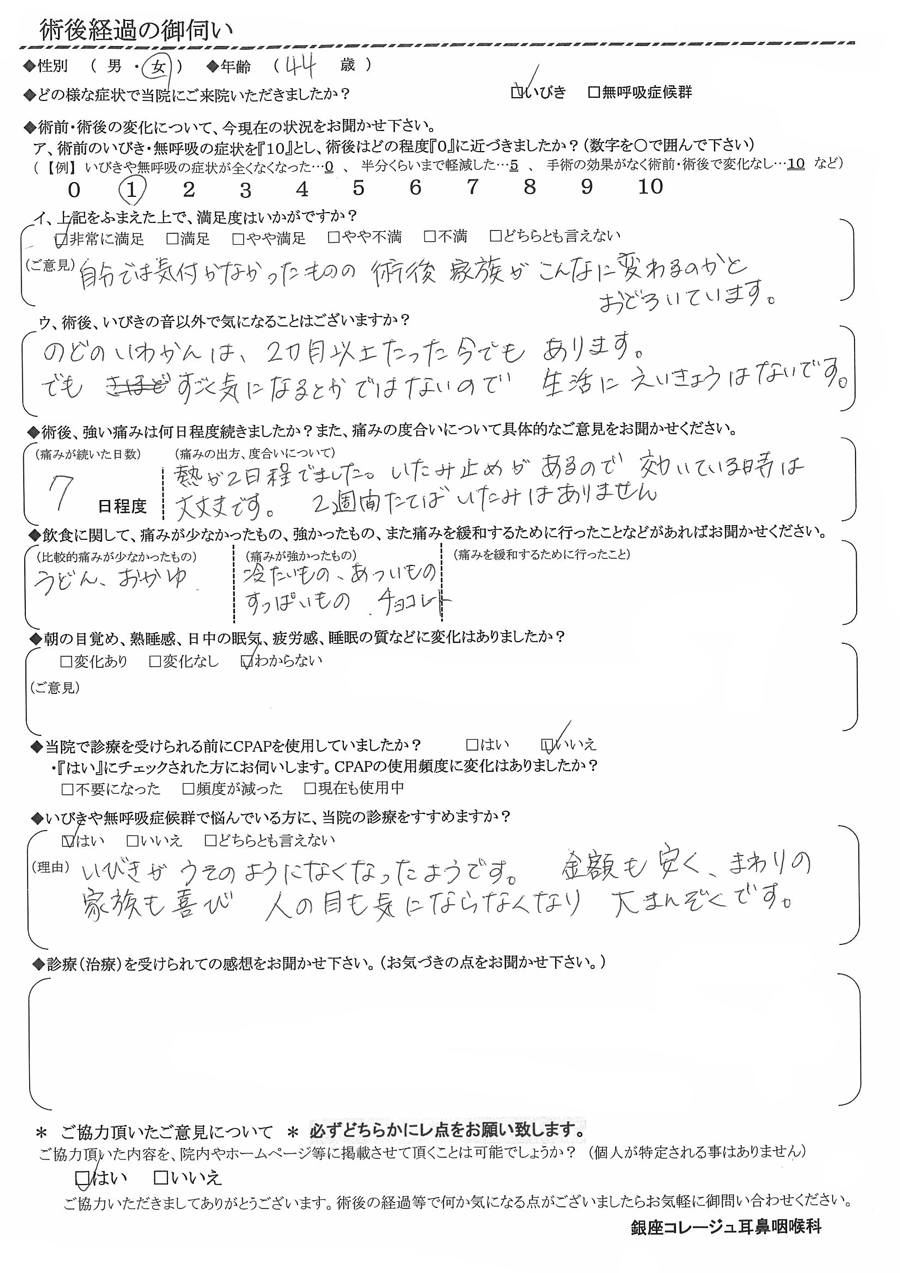 術後経過の御伺い
◆性別 （ 男 ・ 女 ） ◆年齢 （ 44 歳 ）
◆どの様な症状で当院にご来院いただきましたか？ □いびき □無呼吸症候群
◆術前・術後の変化について、今現在の状況をお聞かせ下さい。
ア、術前のいびき・無呼吸の症状を『10』とし、術後はどの程度『0』に近づきましたか？（数字を〇で囲んで下さい）
（ 【例】 いびきや無呼吸の症状が全くなくなった…0 、 半分くらいまで軽減した…5 、 手術の効果がなく術前・術後で変化なし…10 など）
0 1 2 3 4 5 6 7 8 9 10
イ、上記をふまえた上で、満足度はいかがですか？
□非常に満足 □満足 □やや満足 □やや不満 □不満 □どちらとも言えない
（ご意見） 自分では気付かなかったものの 術後 家族が こんなに変わるのかと
おどろいています。
ウ、術後、いびきの音以外で気になることはございますか？
のどのいわかんは、2カ月以上たった今でも あります。
でも さほど すごく気になるとかではないので 生活に えいきょうはないです。
◆術後、強い痛みは何日程度続きましたか？また、痛みの度合いについて具体的なご意見をお聞かせください。
（痛みが続いた日数） （痛みの出方、度合いについて）
熱が2日程でました。いたみ止めが あるので 効いている時は
7 日程度 丈丈夫です。 2週間たてば いたみはありません
◆飲食に関して、痛みが少なかったもの、強かったもの、また痛みを緩和するために行ったことなどがあればお聞かせください。
（比較的痛みが少なかったもの） （痛みが強かったもの） （痛みを緩和するために行ったこと）
うどん、おかゆ 冷たいもの、あついもの
すっぱいもの 、チョコレート
◆朝の目覚め、熟睡感、日中の眠気、疲労感、睡眠の質などに変化はありましたか？
□変化あり □変化なし □わからない
（ご意見）
◆当院で診療を受けられる前にCPAPを使用していましたか？ □はい □いいえ
・『はい』にチェックされた方にお伺いします。CPAPの使用頻度に変化はありましたか？
□不要になった □頻度が減った □現在も使用中
◆いびきや無呼吸症候群で悩んでいる方に、当院の診療をすすめますか？
□はい □いいえ □どちらとも言えない
（理由） いびきが うそのようになくなったようです。 金額も安く、まわりの
家族も喜び 人の目も気にならなくなり 大まんぞくです。
◆診療（治療）を受けられての感想をお聞かせ下さい。（お気づきの点をお聞かせ下さい。）
＊ ご協力頂いたご意見について ＊ 必ずどちらかにレ点をお願い致します。
ご協力頂いた内容を、院内やホームページ等に掲載させて頂くことは可能でしょうか？ （個人が特定される事はありません）
□はい □いいえ
ご協力いただきましてありがとうございます。術後の経過等で何か気になる点がございましたらお気軽に御問い合わせください。
銀座コレージュ耳鼻咽喉科